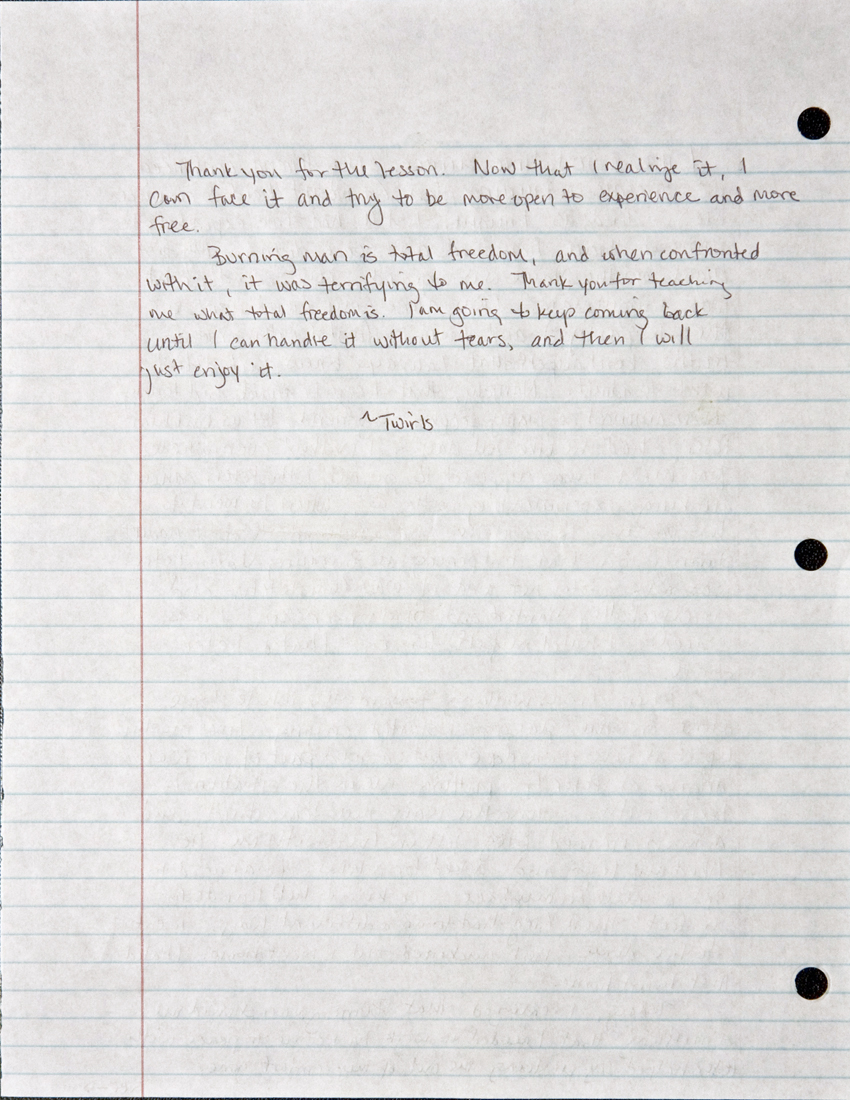 Thank you for the lesson. Now that I realize it, I
can face it and try to be more open to experience and more
free.
Burning man is total freedom, and when confronted
with it, it was terrifying to me. Thank you for teaching
me what total freedom is. I am going to keep coming back
until I can handle it without tears, and then I will
just enjoy it.
~Twirls